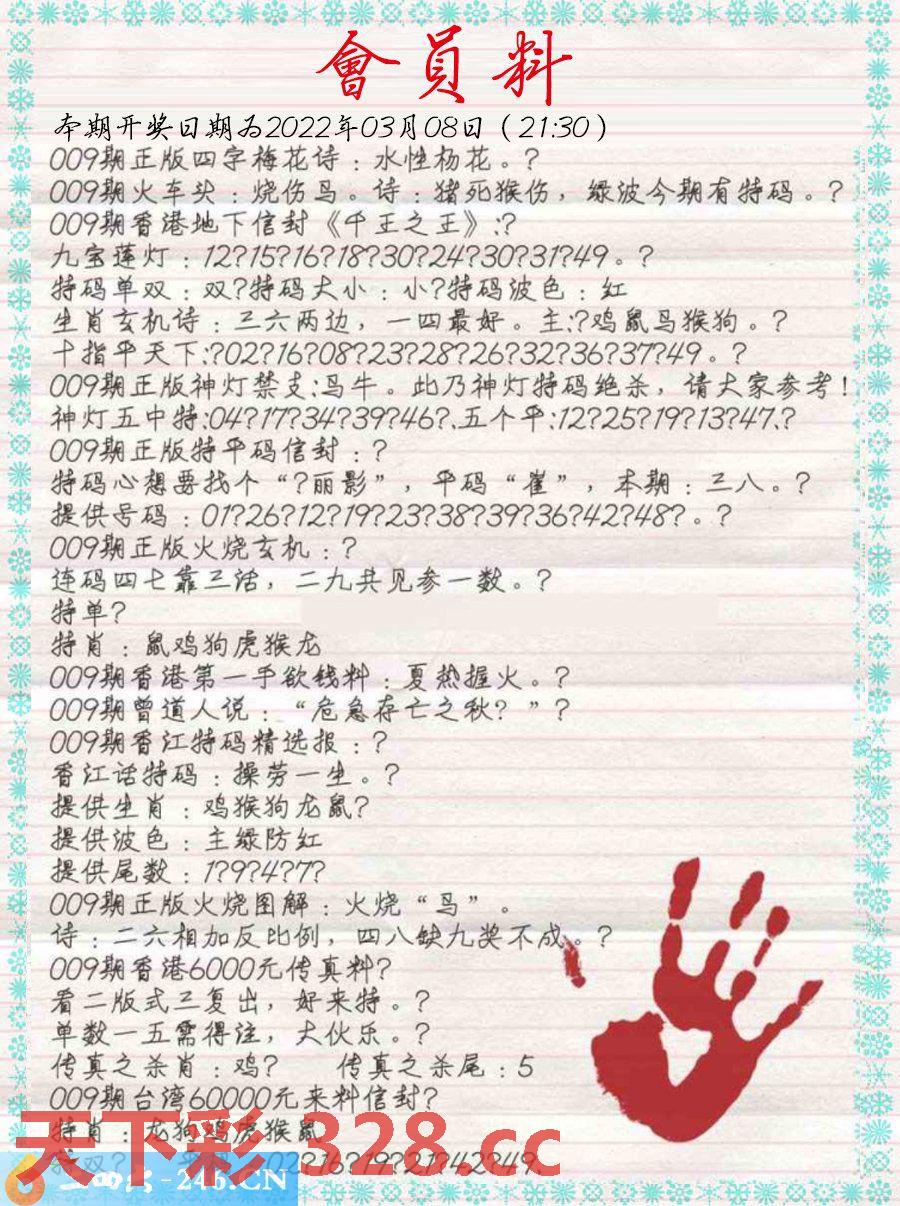 會員料
本期开奖日期为2022年03月08日（21:30）
009期正版四字梅花诗：水性杨花。?
009期火车头：烧伤鸟。诗：猪死猴伤，绿波今期有特码。?
009期香港地下信封《千王之王》:?
九宝莲灯：12?15?16?18?30?24?30?31?49。?
特码单双：双?特码大小：小?特码波色：红
生肖玄机诗：三六两边，一四最好。主:?鸡鼠鸟猴狗。?
十指平天下:?02?16?08?23?28?26?32?36?37?49。?
009期正版神灯禁支:鸟牛。此乃神灯特码绝杀，请大家参考！
神灯五中特:04?17?34?39?46?、五个平:12?25?19?13?47.?
009期正版特平码信封：?
特码心想要找个“?丽影”，平码“崔”，本期：三八。?
提供号码：01?26?12?19?23?38?39?36?42?48?。?
009期正版火烧玄机：?
连码四七靠三活，二九共见参一数。?
特单?
特肖：鼠鸡狗虎猴龙
009期香港第一手欲钱料：夏热握火。?
009期曾道人说：“危急存亡之秋？”?
009期香江特码精选报：?
香江话特码：操劳一生。?
提供生肖：鸡猴狗龙鼠?
提供波色：主绿防红
提供尾数：1?9?4?7?
009期正版火烧图解：火烧“鸟”。
诗：二六相加反比例，四八缺九奖不成。?
009期香港6000元传真料?
看二版式三复出，好来特。?
单数一五需得注，大伙乐。?
传真之杀肖：鸡? 传真之杀尾：5
009期台湾60000元来料信封?
特肖：龙狗鸡虎猴鼠
天下彩 328.cc
02?16?19?21?42?49.
-246.CN